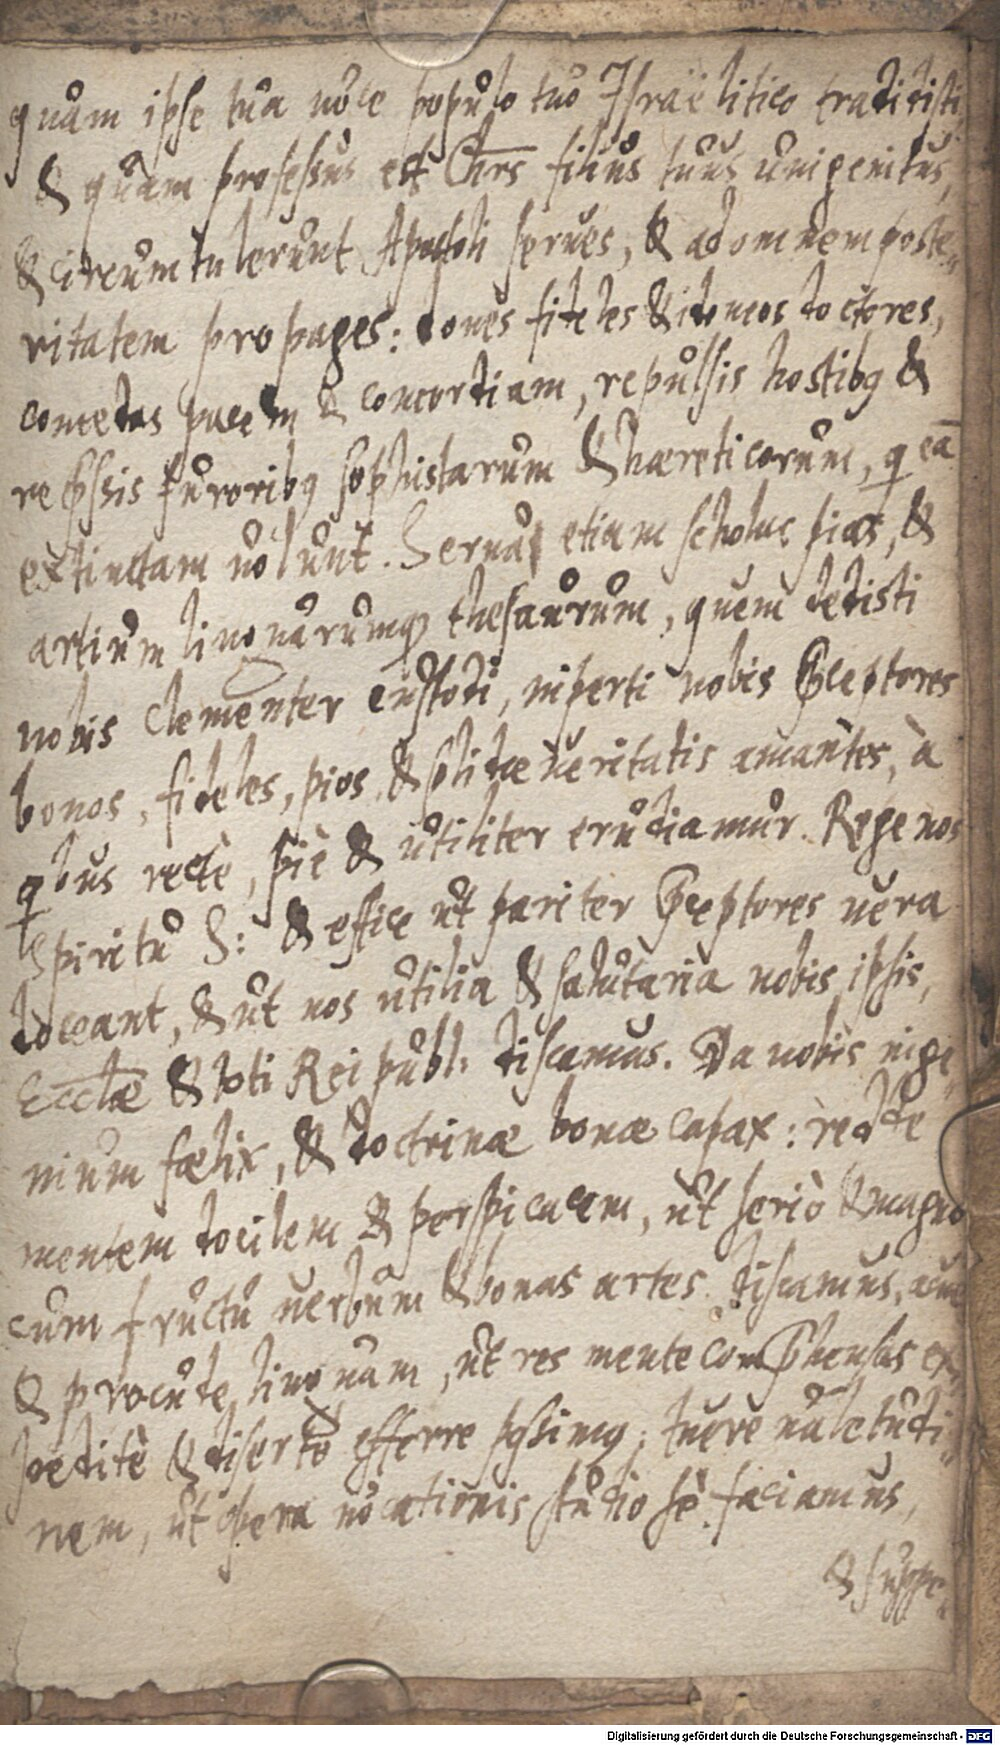 quàm ipse tua uoce populo tuo Israëlitico tradidisti
& quàm professus est Chrs filius tuus unigenitus,
& circumtulerunt Apostoli serues, & ad omnem poste„
ritatem propages: dones fideles & idoneos doctores,
concedas pacem & concordiam, repulsis hostibq &
furoribq sophistarum & hæreticorum, q eā
extinctam uolunt. Serua etiam scholas pias, &
artium linguarumq thesaurum, quem dedisti
nobis clementer custodi, imperti nobis Pceptores
bonos, fideles, pios & solidæ ueritatis amantes, à
qbus rectè, piè & utiliter erudiamur. Rege nos
Spiritu S: & effice ut pariter Pceptores uera
doceant, & ut nos utilia & salutaria nobis ipsis,
Ecclæ & toti Reipubl: discamus. Da nobis inge„
nium fœlix, & doctrinæ bonæ capax: redde
mentem docilem & perspicacem, ut seriò & magno
cum fructu uerbum & bonas artes discamus, acue
& procude linguam, ut res mente comPhensas ex„
peditè & disertè efferre possimq, tuere ualetudi„
nem, ut opera uocationis studiosè faciamus,
& suppe„
Digitalisierung gefördert durch die Deutsche Forschungsgemeinschaft - DFG